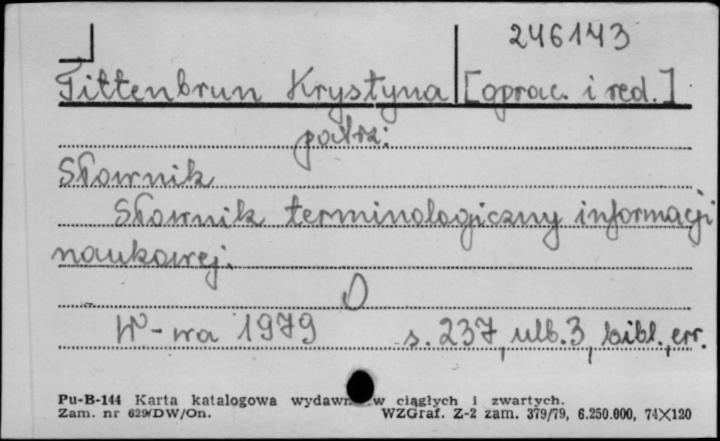 246143
Tittenbrun Krystyna [oprac. i red.]
patrz:
Słownik
Słownik terminologiczny informacji
naukowej.
W-wa 1979 s. 237, nlb. 3, bibl., err.
Pu-B-144 Karta katalogowa wydawn w ciągłych i zwartych.
Zam. nr 629/DW/On. WZGraf. Z-2 zam. 379/79, 6.250.000, 74×120